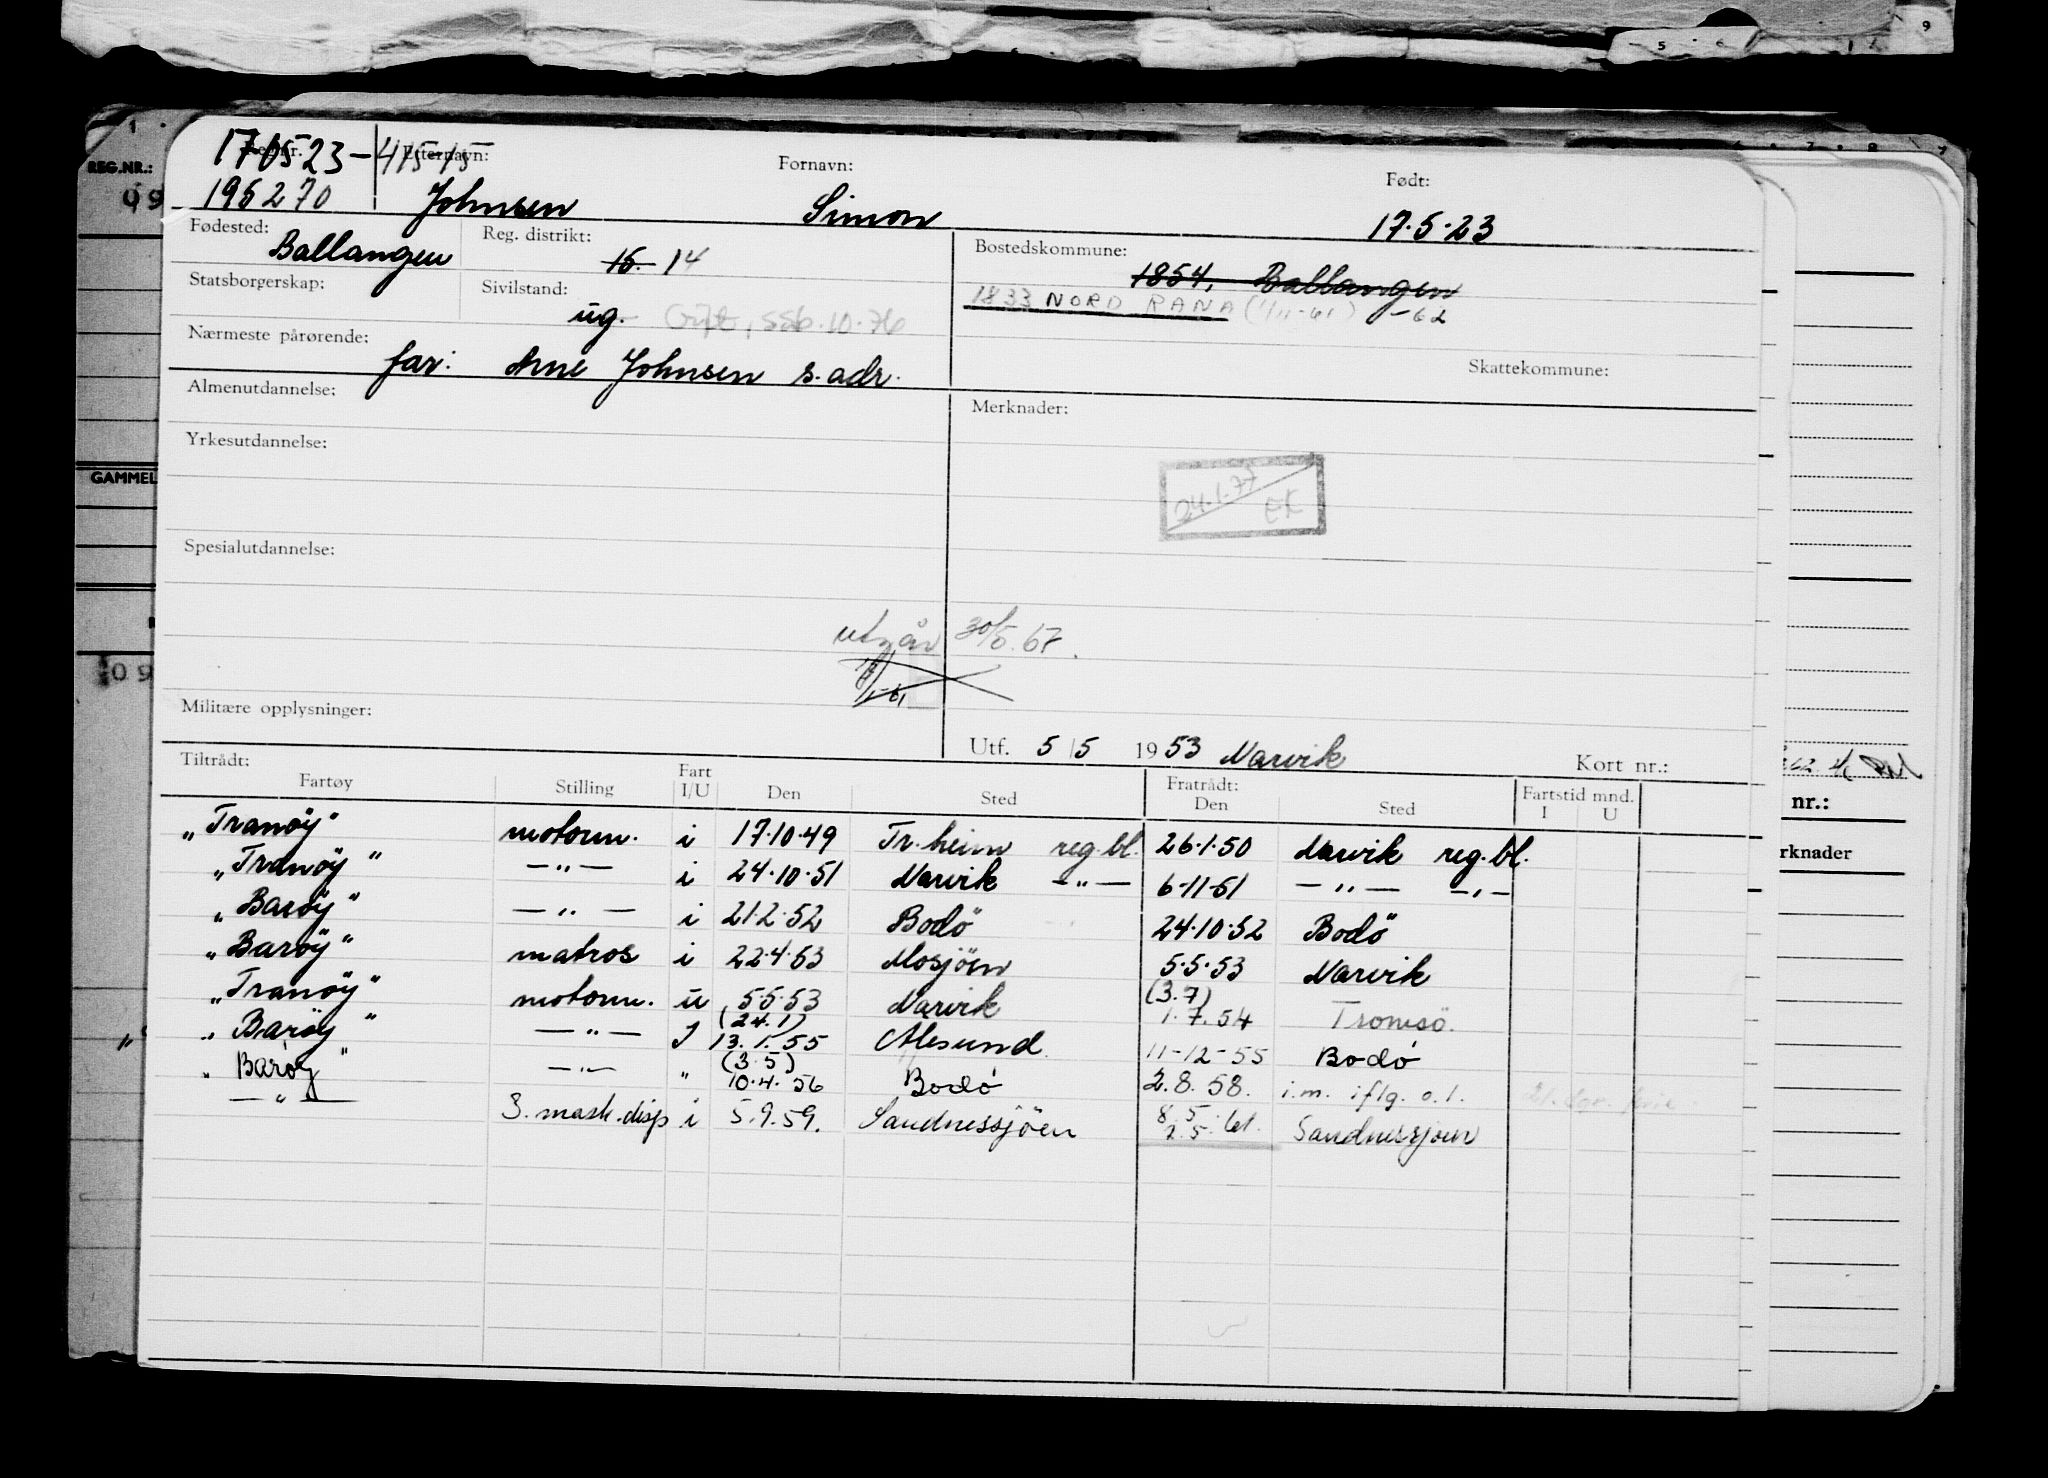 170523-41515
Reg.nr. Etternavn: Fornavn: Født:
195270 Johnsen Simon 17.5.23
Fødested: Ballangen Reg. distrikt: 16. 14 Bostedskommune: 1854, Ballangen
Statsborgerskap: Sivilstand: ug. Gift, SSB.10.76 1833 NORD RANA (1/11-61) -62
Nærmeste pårørende: far: Arne Johnsen s. adr. Skattekommune:
Almenutdannelse: Merknader:
Yrkesutdannelse:
24.1.77 EK
Spesialutdannelse:
utgår 30/5.67.
Militære opplysninger:
Utf. 5/5 1953 Narvik Kort nr.:
Tiltrådt: Fratrådt:
Fartøy Stilling Fart I/U Den Sted Den Sted Fartstid mnd. I U
"Tranøy" motorm. i 17.10.49 Tr.heim reg.bl. 26.1.50 Narvik reg.bl.
"Tranøy" —"— i 24.10.51 Narvik —"— 6.11.51 —"— —"—
"Barøy" —"— i 21.2.52 Bodö 24.10.52 Bodö
"Barøy" matros i 22.4.53 Mosjöen 5.5.53 Narvik
"Tranøy" motorm. u 5.5.53 Narvik (3.7) 1.7.54 Tromsö.
"Barøy" —"— I (24.1) 13.1.55 Ålesund 11-12-55 Bodö
"Barøy" —"— " (3.5) 10.4.56 Bodö 2.8.58. i.m. iflg. o.l.
—"— 3. mask.disp i 5.9.59. Sandnessjöen 8.5. 2.5.61. Sandnessjöen
REG.NR.:
09
GAMMEL
09
nr.:
rknader